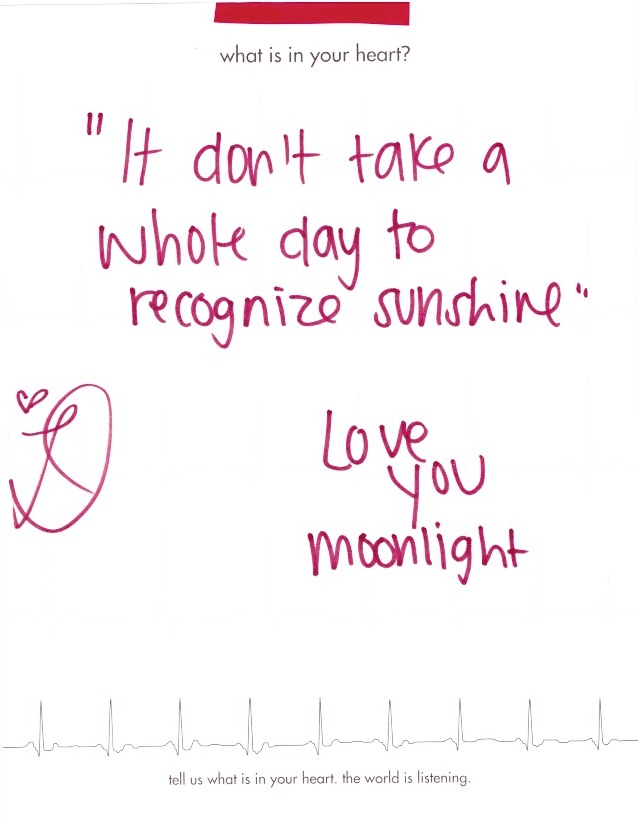 what is in your heart?
"It don't take a
whole day to
recognize sunshine"
Love
you
moonlight
tell us what is in your heart. the world is listening.